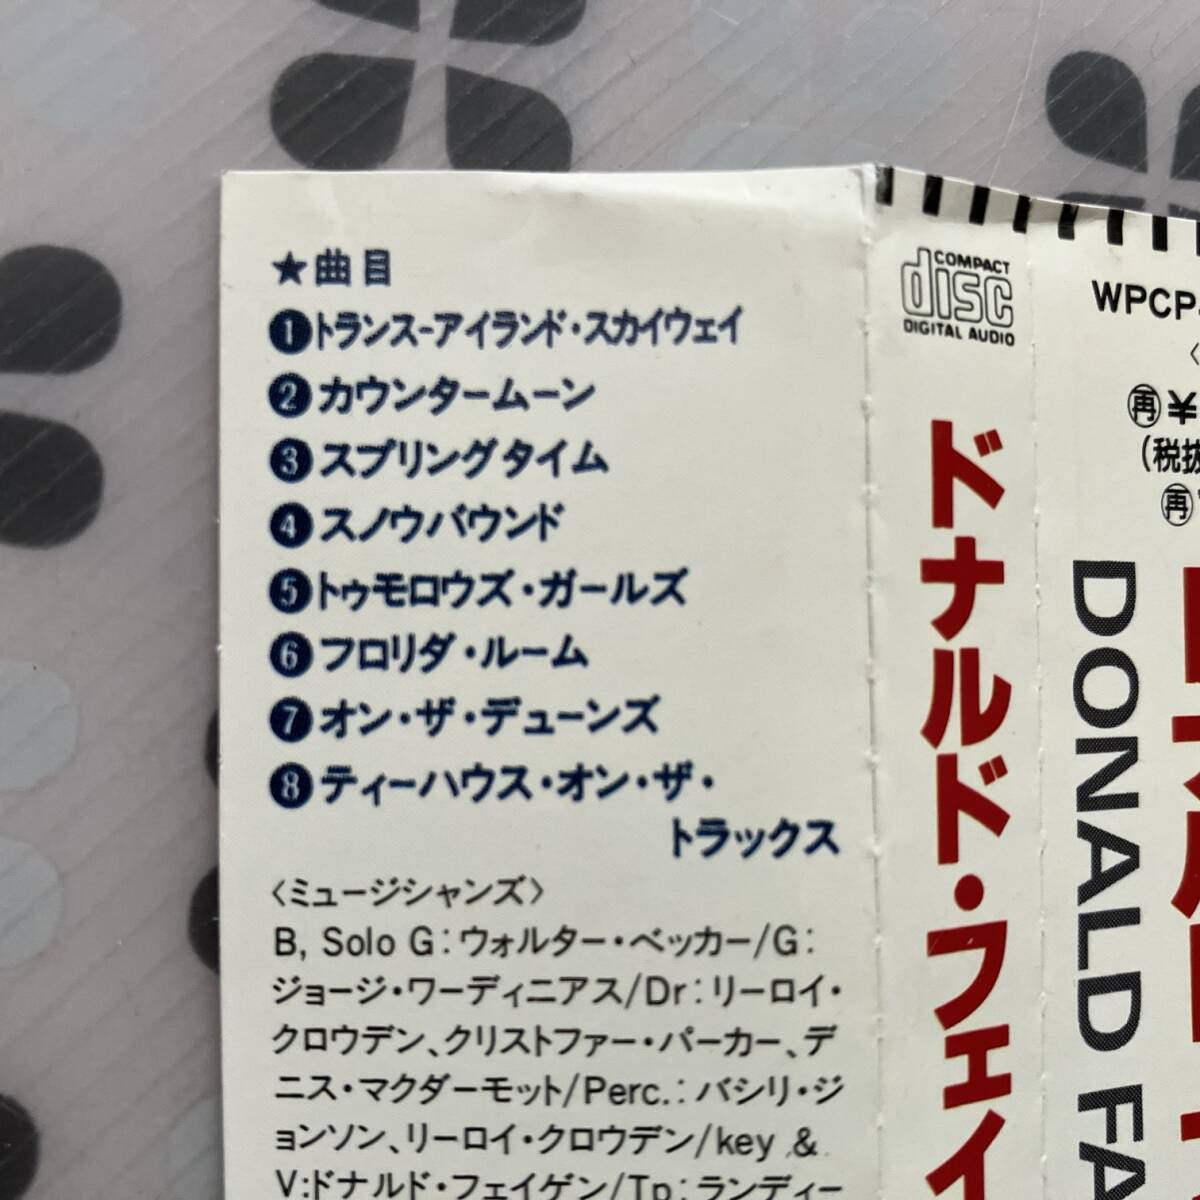 ★曲目
❶トランス-アイランド・スカイウェイ
❷カウンタームーン
❸スプリングタイム
❹スノウバウンド
❺トゥモロウズ・ガールズ
❻フロリダ・ルーム
❼オン・ザ・デューンズ
❽ティーハウス・オン・ザ・
トラックス
〈ミュージシャンズ〉
B, Solo G:ウォルター・ベッカー/G:
ジョージ・ワーディニアス/Dr:リーロイ・
クロウデン、クリストファー・パーカー、デ
ニス・マクダーモット/Perc.:バシリ・ジ
ョンソン、リーロイ・クロウデン/key &
V:ドナルド・フェイゲン/Tp:ランディー
COMPACT
disc
DIGITAL AUDIO
ドナルド・フェイ
WPCP-
再¥
(税抜
再
DONALD FA